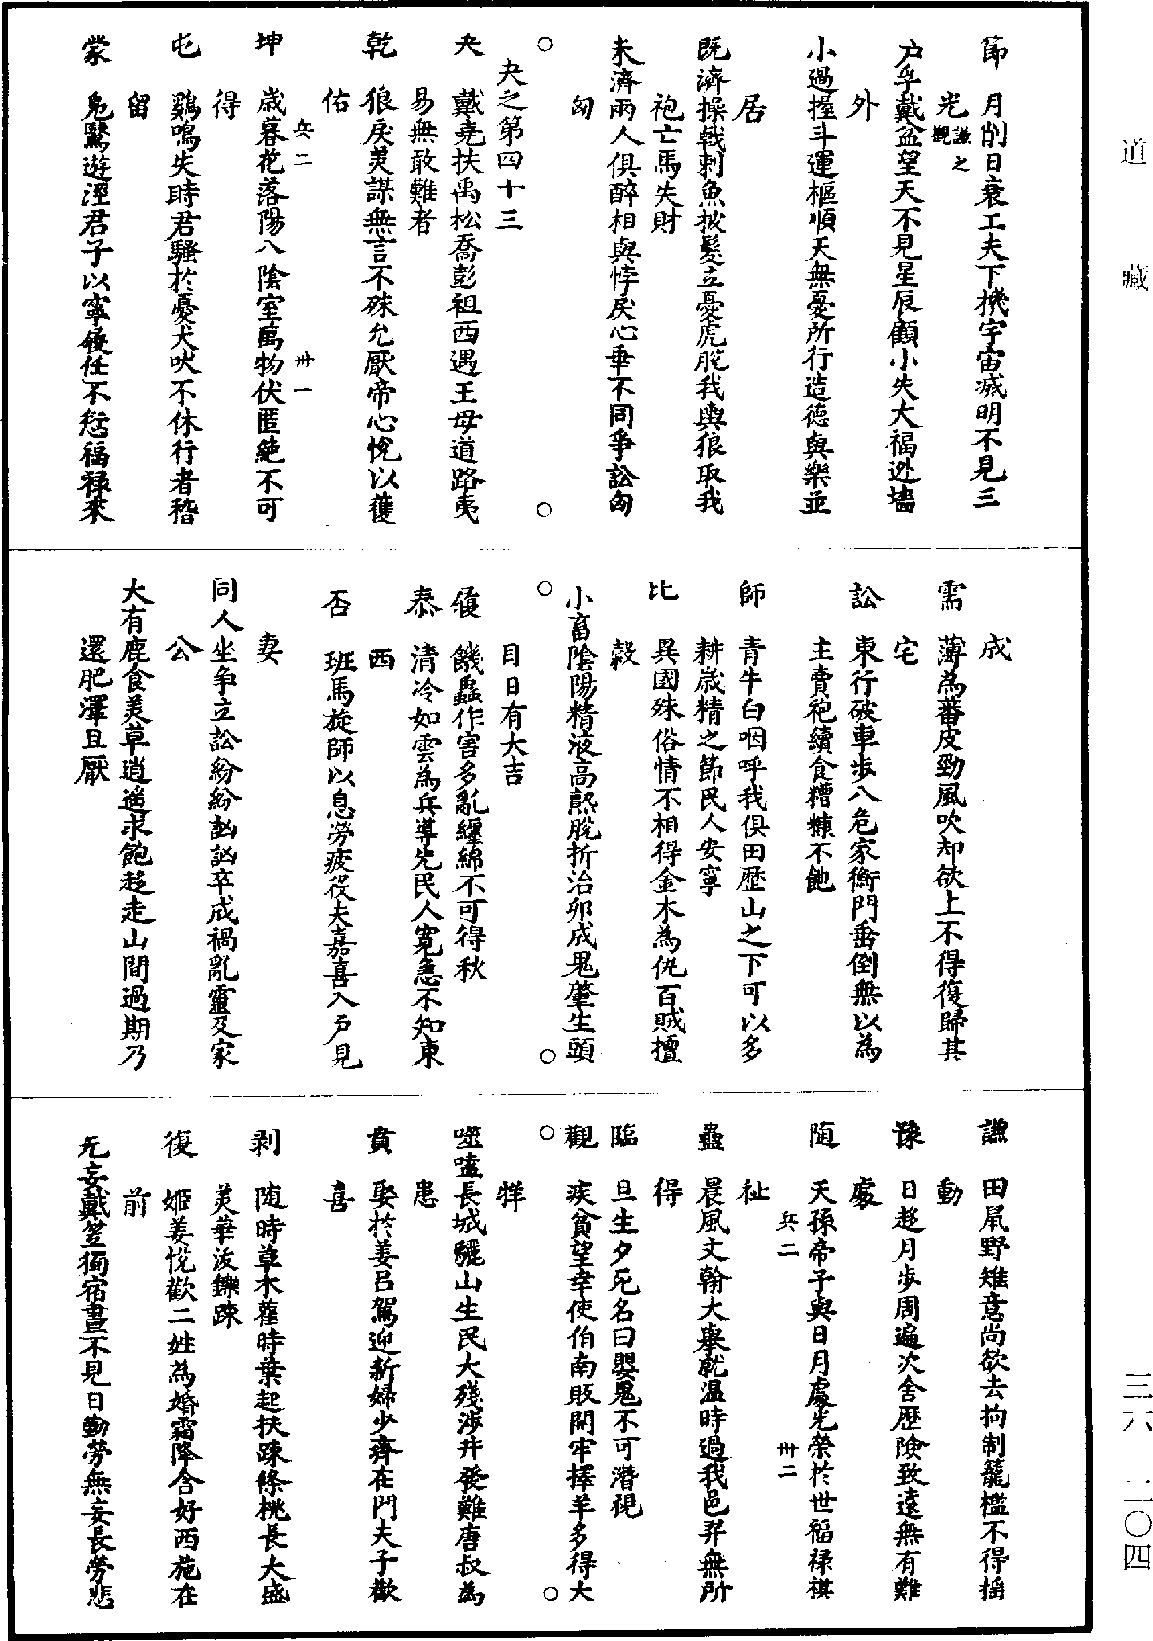 道藏
節　月削日衰工夫下機宇宙滅明不見三
光觀謙之
戶孚戴盆望天不見星辰顧小失大福逃墻
外
小過握斗運樞順天無憂所行造德與樂並
居
既濟操戟刺魚披髮立憂虎脫我輿狼取我
袍亡馬失財
未濟兩人俱醉相與悖戾心乖不同爭訟匈
匈
夬之第四十三
夬　戴堯扶禹松喬彭祖西遇王母道路夷
易無敢難者
乾　狼戾美謀無言不殊允厭帝心悅以獲
佑
兵二　卅一
坤　歲暮花落陽入陰室萬物伏匿絕不可
得
屯　鷄鳴失時君騷於憂犬吠不休行者稽
留
蒙　鳧鷖遊涇君子以寧履任不愆福祿來
成
需　薄為蕃皮勁風吹却欲上不得復歸其
宅
訟　東行破車步入危家衡門垂倒無以為
主賣袍續食糟糠不飽
師　青牛白咽呼我俱田歷山之下可以多
耕歲精之節民人安寧
比　異國殊俗情不相得金木為仇百賊擅
穀
小畜陰陽精液高熟脫折治卵成鬼肇生頭
目日有大吉
履　饑蝨作害多亂纏綿不可得秋
泰　清冷如雲為兵導先民人寬急不知東
西
否　班馬旋師以息勞疲役夫嘉喜入戶見
妻
同人坐爭立訟紛紛訩訩卒成禍亂靈及家
公
大有鹿食美草逍遙求飽趍走山間過期乃
還肥澤且厭
謙　田鼠野雉意尚欲去拘制籠檻不得搖
動
豫　日趍月步周遍次舍歷險致遠無有難
處
隨　天孫帝子與日月處光榮於世福祿祺
祉
兵二　卅二
蠱　晨風文翰大舉就溫時過我邑羿無所
得
臨　旦生夕死名曰嬰鬼不可潛視
觀　疾貧望幸使伯南販開牢擇羊多得大
牂
噬嗑長城驪山生民大殘涉井發難唐叔為
患
賁　娶於姜呂駕迎新婦少齊在門夫子歡
喜
剥　隨時草木舊時葉起扶踈條桃長大盛
美華沒鑠踈
復　姬姜悅歡二姓為婚霜降合好西施在
前
无妄戴笠獨宿晝不見日勤勞無妄長勞悲
三六　二〇四